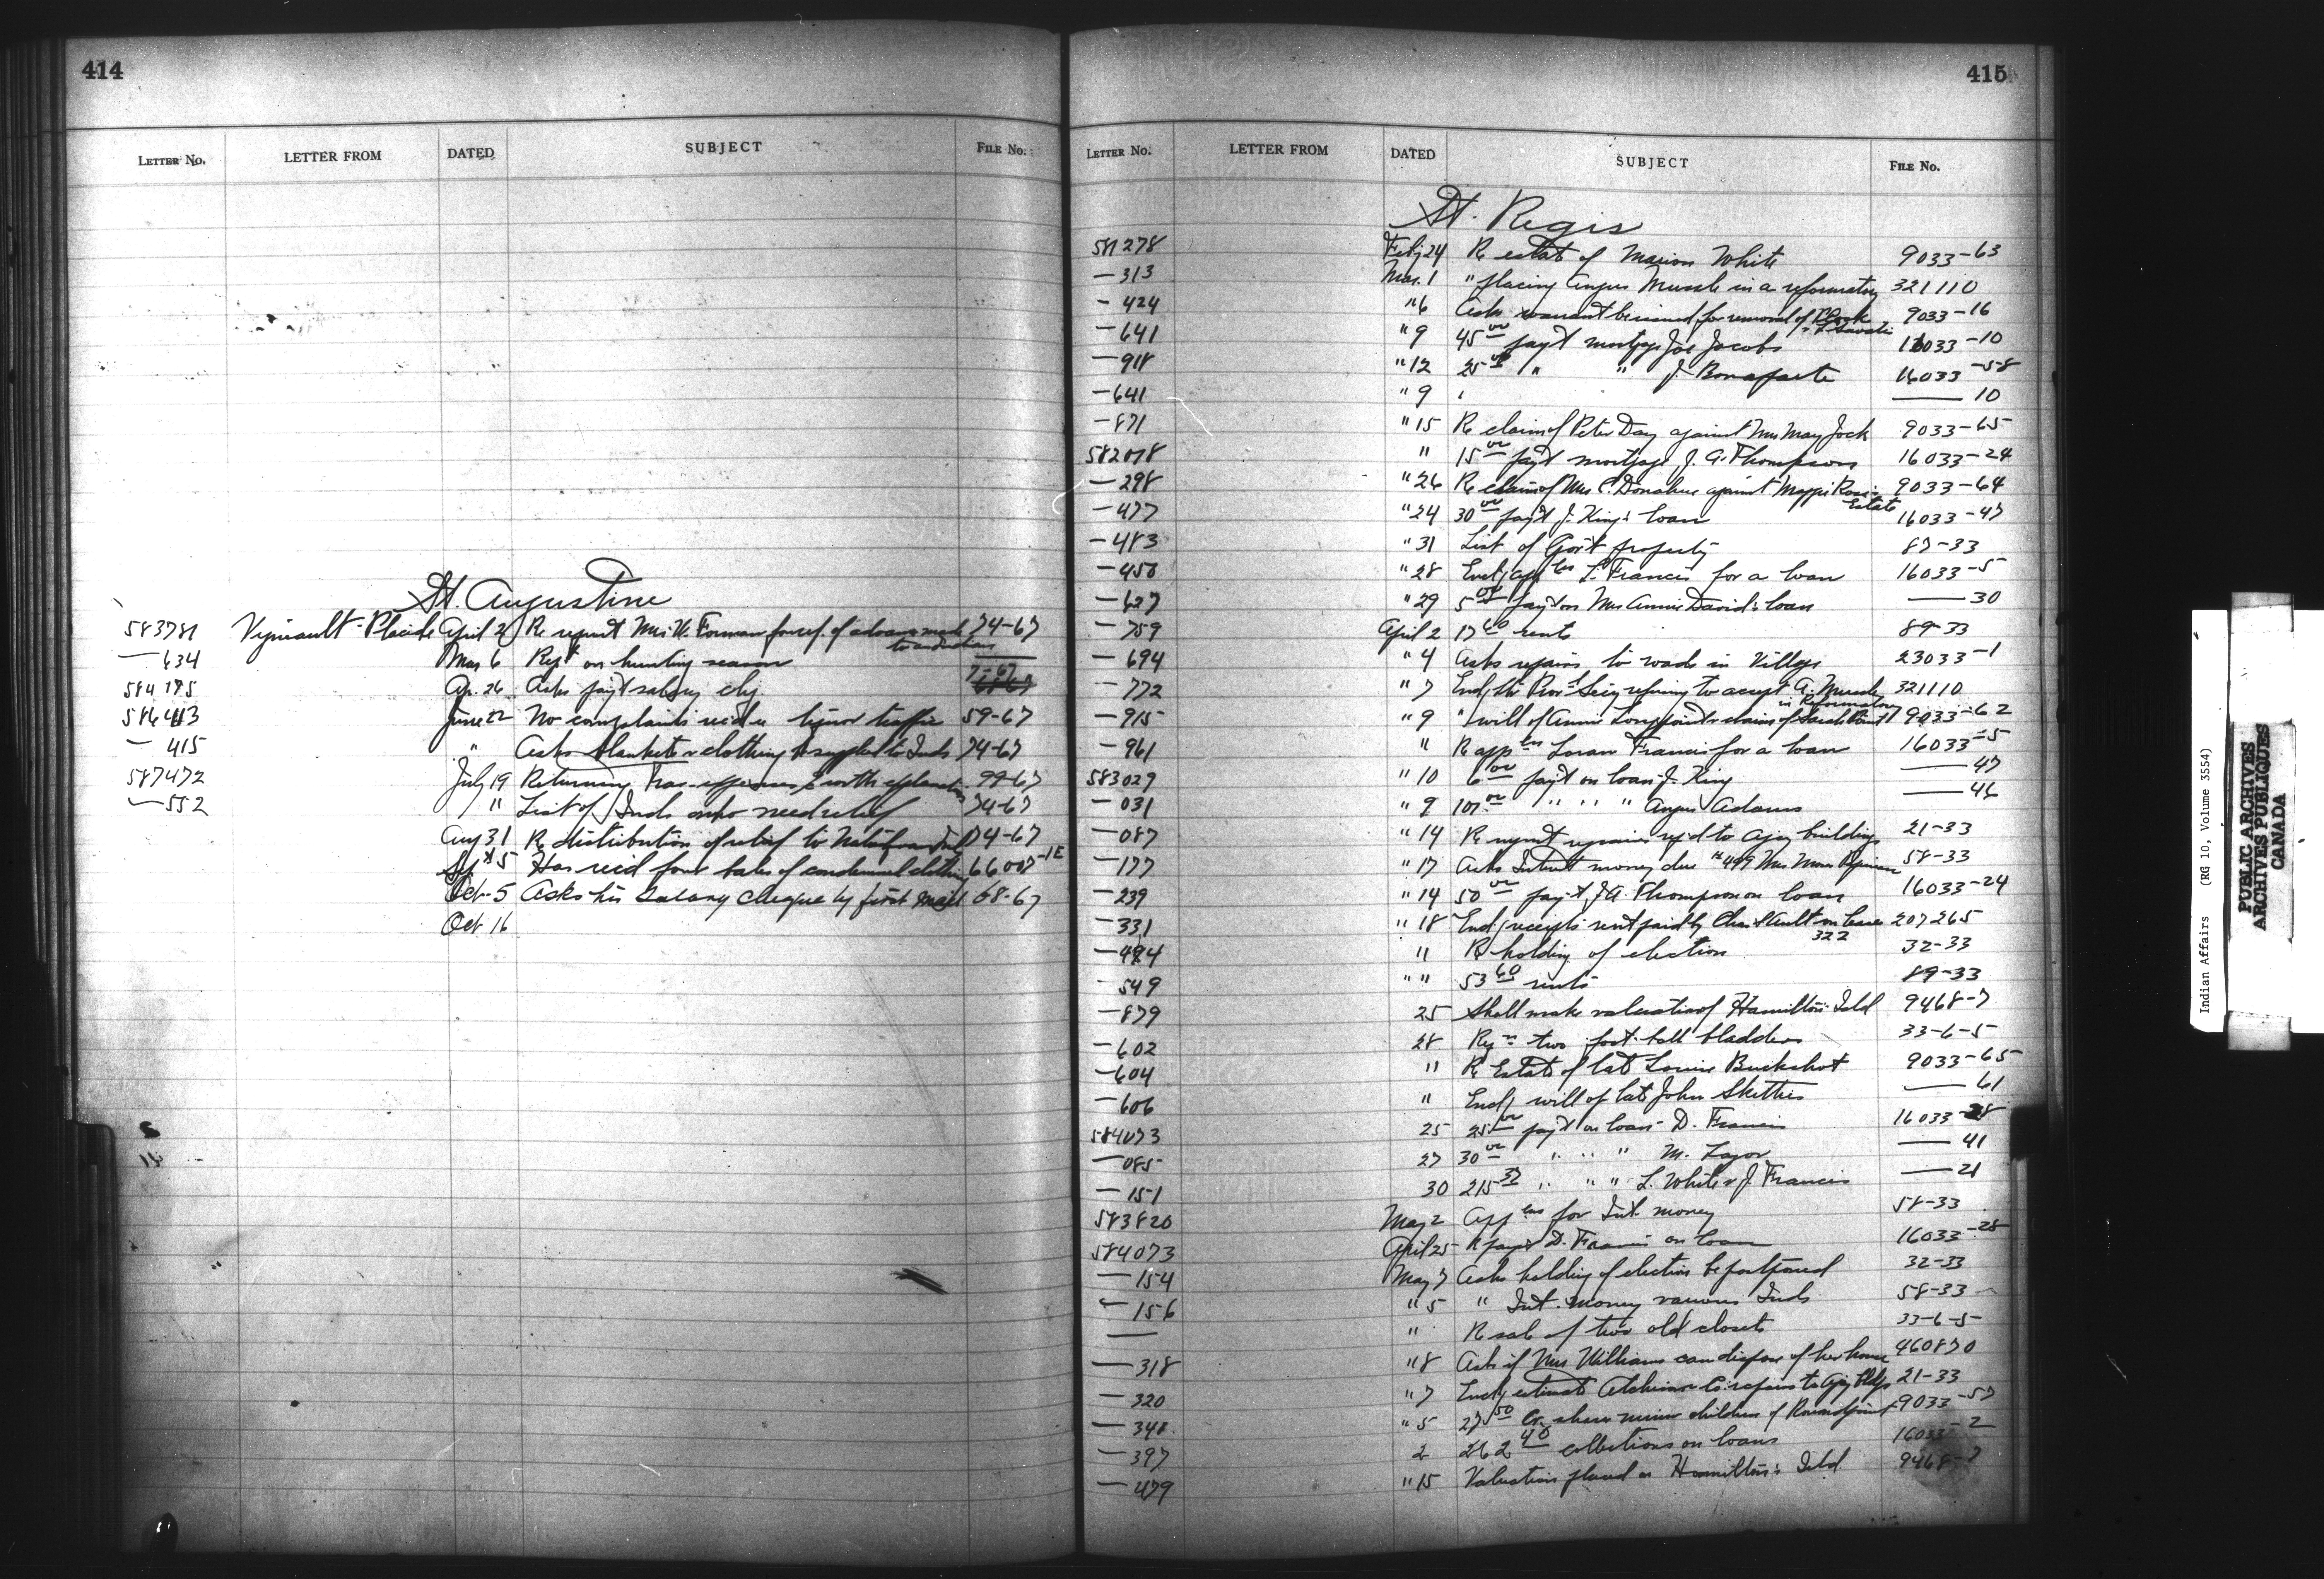 414
LETTER NO. LETTER FROM DATED SUBJECT FILE NO.
St. Augustine
583781 Vigneault Placide April 2 Re report Mrs. W. Forman for of advances made to an Indian 74-67
— 634 Mar 6 Rept on hunting season
7-67
584175 Ap. 26 Asks pay't salary chq. 68-67
586413 June 22 No complaints rec'd re liquor traffic 59-67
— 415 " Asks blankets & clothing supplied to Inds 74-67
587472 July 19 Returning Trav. expenses with explanation 99-67
— 552 " List of Inds who need relief 74-67
Aug 31 Re distribution of relief to Inds 74-67
Sept 5 Has rec'd four bales of condemned clothing 66007-1E
Oct 5 Asks his salary cheque by first mail 68-67
Oct 16
415
LETTER NO. LETTER FROM DATED SUBJECT FILE NO.
St. Regis
581278 Feby 24 Re estate of Marion White 9033-63
— 313 Mar. 1 " placing Angus Mussle in a reformatory 321110
— 424 " 6 Asks warrant be issued for removal of 9033-16
— 641 " 9 45 00 pay't mortgage Joe Jacobs 16033-10
— 918 " 12 25 00 " " J. Bonaparte 16033-58
— 641 " 9 — 10
— 871 " 15 Re claim of Peter Day against Mrs May Jock 9033-65
582078 " 15 00 pay't mortgage J. A. Thompson 16033-24
— 298 " 26 Re claim of Mrs C. Donahue against Maggie Ross's Estate 9033-64
— 477 " 24 30 00 pay't J. King's loan 16033-47
— 483 " 31 List of Gov't property 87-33
— 450 " 28 Encl'g appln L. Francis for a loan 16033-5
— 627 " 29 5 00 pay't on Mrs Annie David's loan — 30
— 759 April 2 17 60 rents 89-33
— 694 " 4 Asks repairs to roads in Village 23033-1
— 772 " 7 Encl'g ltr Prov'l Sec'y refusing to accept A. Mussle in Reformatory 321110
— 915 " 9 " will of Annie Longpoint & claim of Sarah Point 9033-62
— 961 " Re appln Loran Francis for a loan 16033-5
583029 " 10 6 00 pay't on loan J. King — 47
— 031 " 9 107 00 " " " Angus Adams — 46
— 087 " 14 Re report repairs req'd to agcy buildings 21-33
— 177 " 17 Asks Interest money due #499 Mrs 58-33
— 239 " 14 50 00 pay't J. A. Thompson on loan 16033-24
— 331 " 18 Encl'g receipts rent paid by Chas. Ault on lease 322 207265
— 494 " Re holding of election 32-33
— 549 " " 53 60 rents 89-33
— 879 25 Shall make valuation of Hamilton's Isld 9468-7
— 602 28 Reqn two foot-ball bladders 33-6-5
— 604 " Re Estate of late Louis Buckshot 9033-65
— 606 " Encl'g will of late John Sketties — 61
584073 25 25 00 pay't on loan D. Francis 16033-28
— 085 27 30 00 " " " M. Lazor — 41
— 151 30 215 37 " " " L. White & J. Francis — 21
583820 May 2 Applns for Int. money 58-33
584073 April 25 Re pay't D. Francis on loan 16033-28
— 154 May 7 Asks holding of election be postponed 32-33
— 156 " 5 " Int. money various Inds 58-33
— " Re sale of two old closets 33-6-5
— 318 " 8 Asks if Mrs Williams can dispose of her house 460870
— 320 " 7 Encl'g estimate repairs to agcy bldgs 21-33
— 348 " 5 27 50 Cr. share minor children of Roundpoint 9033-57
— 397 2 262 40 collections on loans 16033-2
— 479 " 15 Valuation placed on Hamilton's Isld 9468-7
Indian Affairs (RG 10, Volume 3554)
PUBLIC ARCHIVES
ARCHIVES PUBLIQUES
CANADA